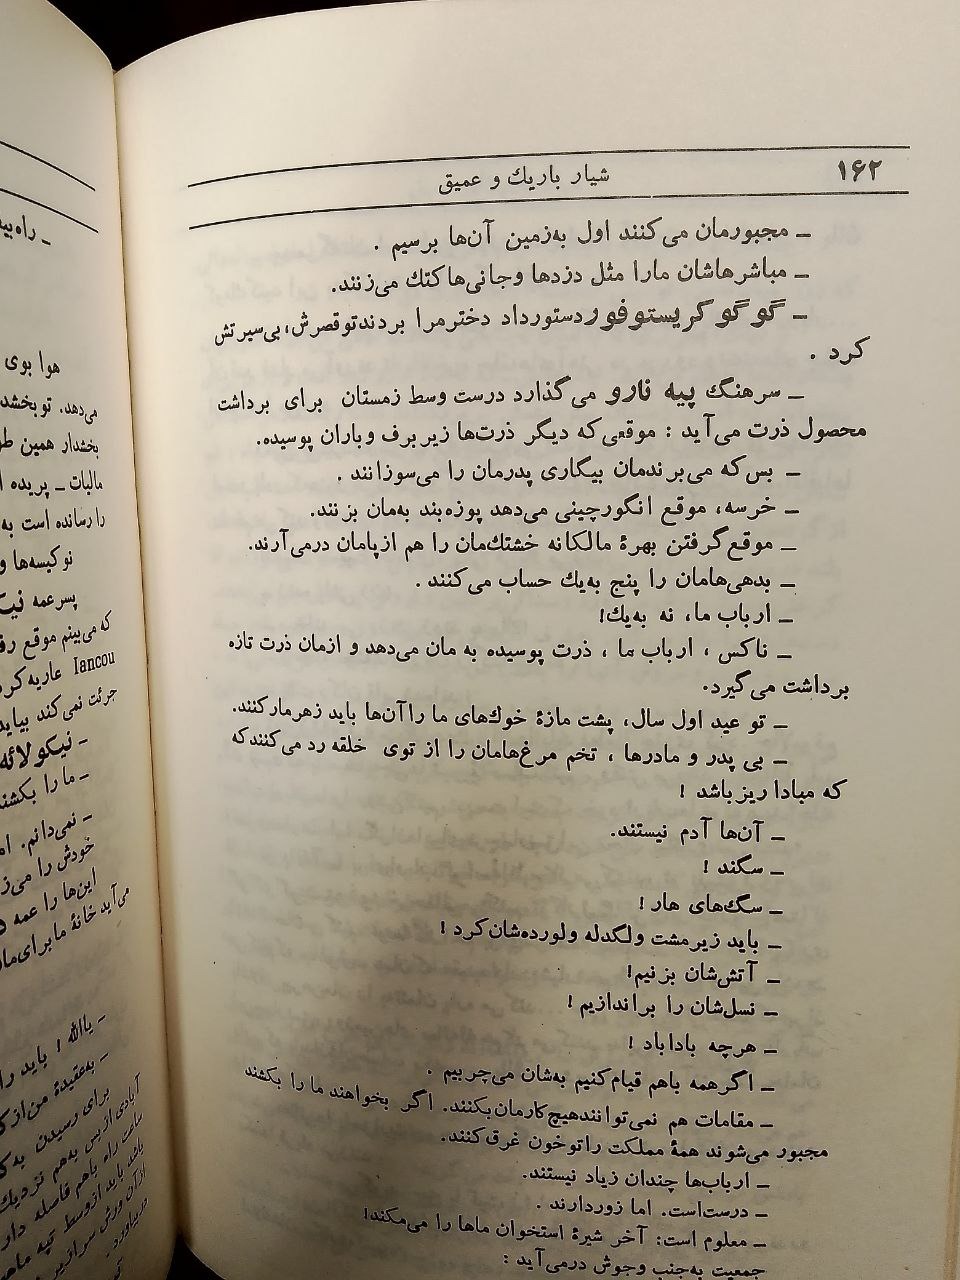 ۱۶۲
شیار باریك و عمیق
ـ مجبورمان می‌کنند اول به‌زمین آن‌ها برسیم .
ـ مباشرهاشان مارا مثل دزدها وجانی‌ها کتك می‌زنند.
ـ گوگو کریستوفور دستورداد دخترمرا بردند توقصرش، بی‌سیرتش
کرد .
ـ سرهنگ پیه نارو می‌گذارد درست وسط زمستان برای برداشت
محصول ذرت می‌آید : موقعی‌که دیگر ذرت‌ها زیر برف وباران پوسیده.
ـ بس‌که می‌برندمان بیگاری پدرمان را می‌سوزانند .
ـ خرسه، موقع انگورچینی می‌دهد پوزه‌بند به‌مان بزنند.
ـ موقع‌گرفتن بهرهٔ مالکانه خشتك‌مان را هم ازپامان درمی‌آرند.
ـ بدهی‌هامان را پنج به‌یك حساب می‌کنند .
ـ ارباب ما، نه به‌یك!
ـ ناکس ، ارباب ما ، ذرت پوسیده به مان می‌دهد و ازمان ذرت تازه
برداشت می‌گیرد.
ـ تو عید اول سال، پشت مازهٔ خوك‌های ما را آن‌ها باید زهرمارکنند.
ـ بی پدر و مادرها ، تخم مرغ‌هامان را از توی خلقه رد می‌کنندکه
که مبادا ریزباشد !
ـ آن‌ها آدم نیستند.
ـ سگند !
ـ سگ‌های هار !
ـ باید زیرمشت ولگدله ولورده‌شان‌کرد !
ـ آتش‌شان بزنیم!
ـ نسل‌شان را براندازیم !
ـ هرچه باداباد !
ـ اگرهمه باهم قیام‌کنیم به‌شان می‌چربیم .
ـ مقامات هم نمی‌توانندهیچ‌کارمان‌بکنند. اگر بخواهند ما را بکشند
مجبور می‌شوند همهٔ مملکت راتوخون غرق‌کنند.
ـ ارباب‌ها چندان زیاد نیستند.
ـ درست‌است. اما زوردارند .
ـ معلوم است: آخر شیرهٔ استخوان ماها را می‌مکند!
جمعیت به‌جنب وجوش درمی‌آید :
ـ راه
هوا بوی
می‌دهد. تو
بخشدار همین
مالیات ـ پریده
را رسانده است به
نوکیسه‌ها و
پسرعمه
که می‌بینم موقع
Iancou عاریه
جرئت نمی‌کند بیاید
ـ نیکولائه
ـ ما را
ـ نمی‌دانم.
خودش را
این‌ها را عمه
می‌آید خانهٔ ما برای
ـ یاالله ! باید
ـ به‌عقیدهٔ من از
برای رسیدن
آبادی ازبس به‌هم نزدیك
ساعت راه باهم فاصله
باید ازوسط تپه